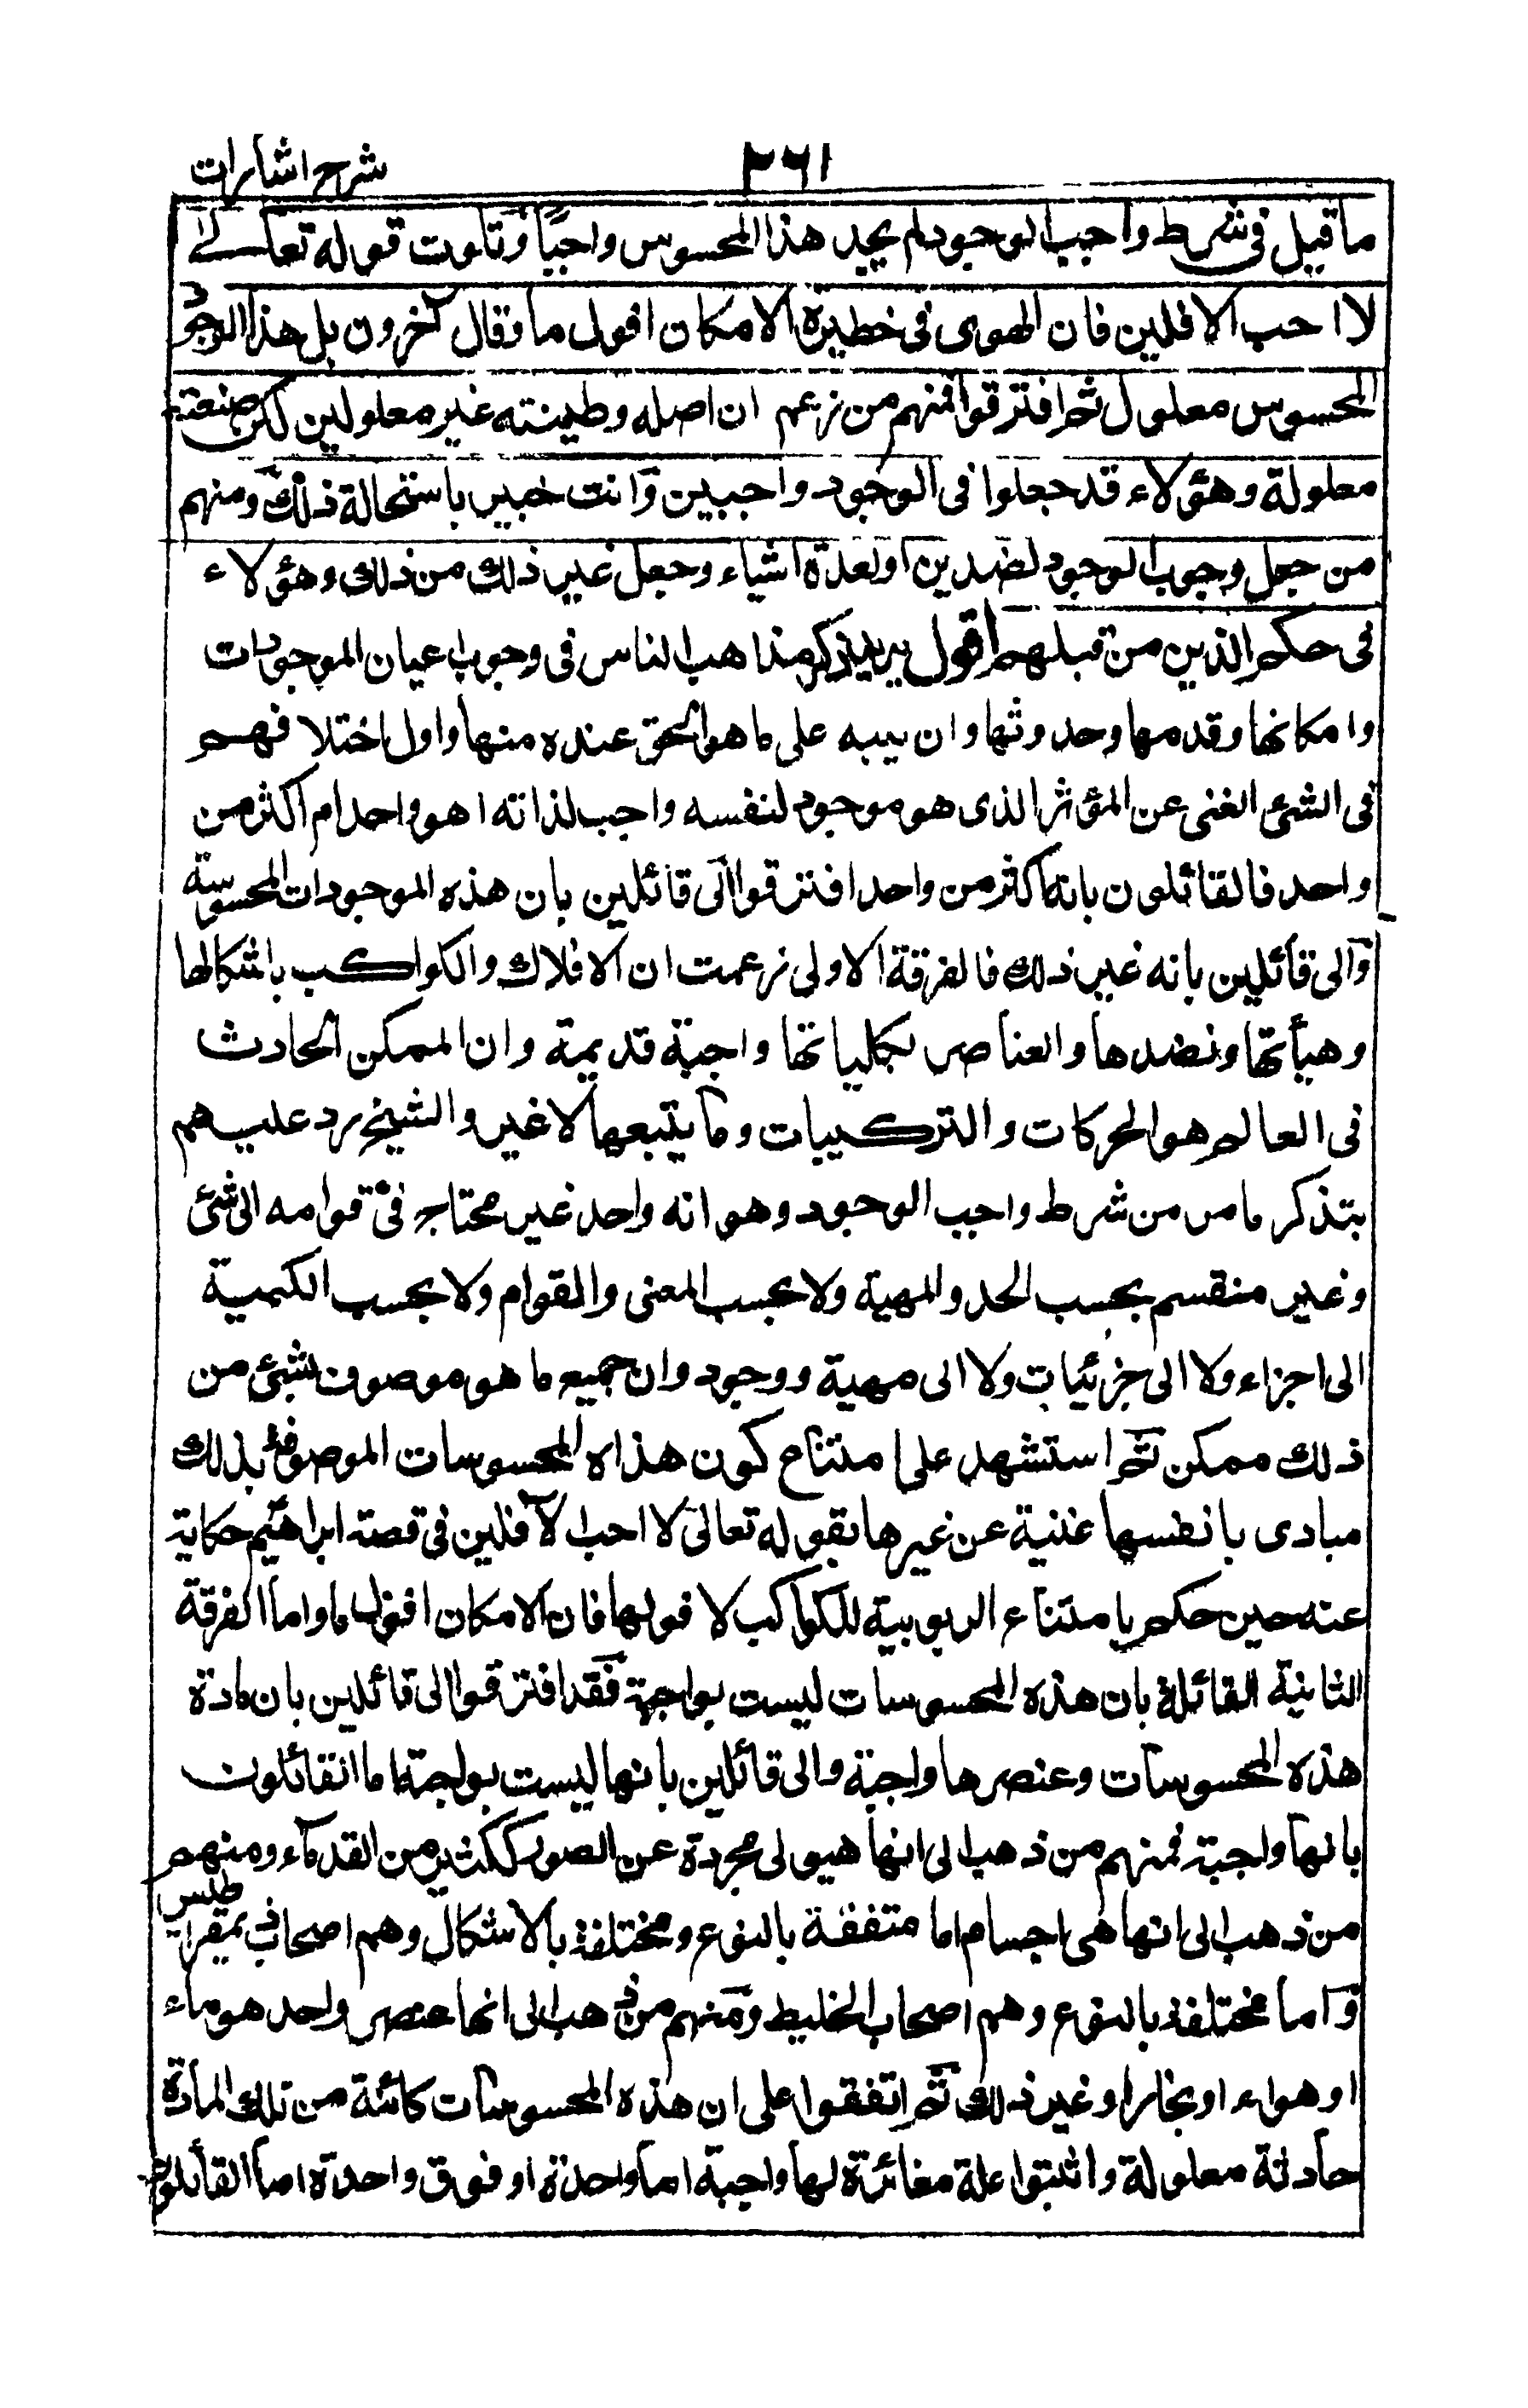 ٢٦١ شرح اشارات
ما قيل فى شرط واجب الوجود لم يجد هذا المحسوس واجبًا وتلوت قوله تعالى
لا احب الافلين فان الهوى فى خطيرة الامكان افول ما وقال آخرون بل هذا الوجود
المحسوس معلول ثم افترقوا فمنهم من زعم ان اصله وطينته غير معلولين لكن صنعته
معلولة وهؤلاء قد جعلوا فى الوجود واجبين وانت خبير باستحالة ذلك ومنهم
من جعل وجوب الوجود لضدين او لعدة اشياء وجعل غير ذلك من ذلك وهؤلاء
فى حكم الذين من قبلهم اقول يريد ذكر مذاهب الناس فى وجوب اعيان الموجودات
وامكانها وقدمها وحدوثها وان ينبه على ما هو الحق عنده منها واول اختلافهم
فى الشئ الغنى عن المؤثر الذى هو موجود لنفسه واجب لذاته اهو واحد ام اكثر من
واحد فالقائلون بانه اكثر من واحد افترقوا الى قائلين بان هذه الموجودات المحسوسة
والى قائلين بانه غير ذلك فالفرقة الاولى زعمت ان الافلاك والكواكب باشكالها
وهيأتها ونضدها والعناصر بكلياتها واجبة قديمة وان الممكن الحادث
فى العالم هو الحركات والتركيبات وما يتبعها لا غير والشيخ رد عليهم
بتذكر ما مر من شرط واجب الوجود وهو انه واحد غير محتاج فى قوامه الى شئ
وغير منقسم بحسب الحد والمهية ولا بحسب المعنى والقوام ولا بحسب الكمية
الى اجزاء ولا الى جزئيات ولا الى مهية ووجود وان جميع ما هو موصوف بشئ من
ذلك ممكن ثم استشهد على امتناع كون هذاه المحسوسات الموصوفة بذلك
مبادى بانفسها غنية عن غيرها بقوله تعالى لا احب الآفلين فى قصة ابراهيم حكاية
عنه حين حكم بامتناع الربوبية للكواكب لافولها فان الامكان افول ما واما الفرقة
الثانية القائلة بان هذه المحسوسات ليست بواجبة فقد افترقوا الى قائلين بان مادة
هذه المحسوسات وعنصرها واجبة والى قائلين بانها ليست بواجبة اما القائلون
بانها واجبة فمنهم من ذهب الى انها هيولى مجردة عن الصور ككثير من القدماء ومنهم
من ذهب الى انها هى اجسام اما متفقة بالنوع ومختلفة بالاشكال وهم اصحاب ذيمقراطيس
واما مختلفة بالنوع وهم اصحاب الخليط ومنهم من ذهب الى انها عنصر واحد هو ماء
او هواء او بخار او غير ذلك ثم اتفقوا على ان هذه المحسوسات كائنة من تلك المادة
حادثة معلولة واثبتوا علة مغائرة لها واجبة اما واحدة او فوق واحدة اما القائلون